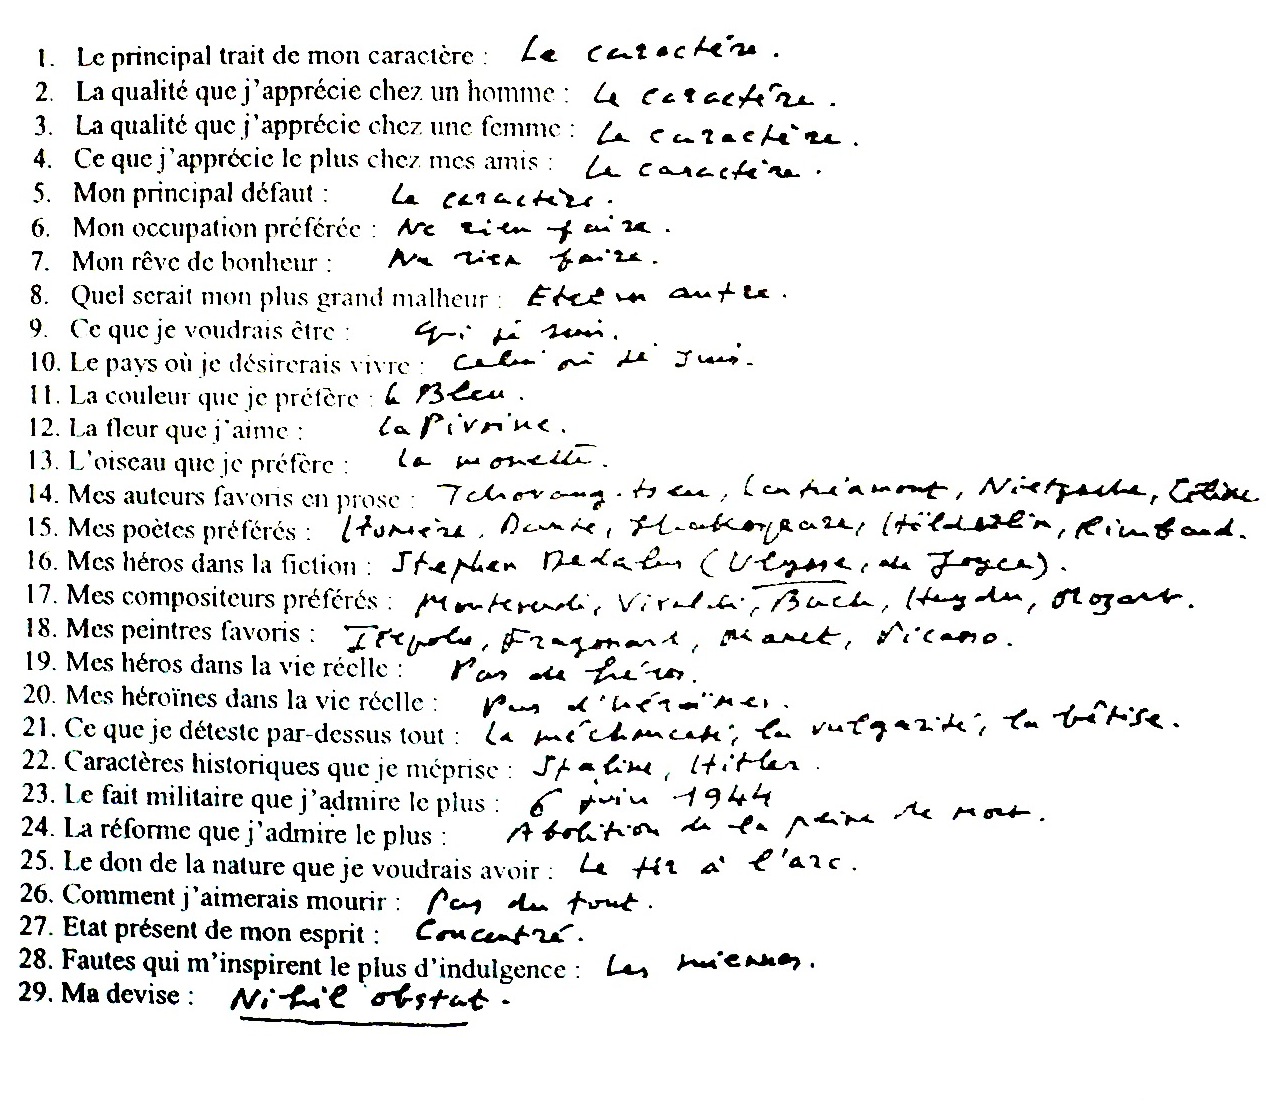 1. Le principal trait de mon caractère : Le caractère.
2. La qualité que j'apprécie chez un homme : Le caractère.
3. La qualité que j'apprécie chez une femme : Le caractère.
4. Ce que j'apprécie le plus chez mes amis : Le caractère.
5. Mon principal défaut : Le caractère.
6. Mon occupation préférée : Ne rien faire.
7. Mon rêve de bonheur : Ne rien faire.
8. Quel serait mon plus grand malheur : Etre un autre.
9. Ce que je voudrais être : Qui je suis.
10. Le pays où je désirerais vivre : Celui où je suis.
11. La couleur que je préfère : Le Bleu.
12. La fleur que j'aime : La Pivoine.
13. L'oiseau que je préfère : La mouette.
14. Mes auteurs favoris en prose : Tchouang-tseu, Lautréamont, Nietzsche, Céline
15. Mes poètes préférés : Homère, Dante, Shakespeare, Hölderlin, Rimbaud.
16. Mes héros dans la fiction : Stephen Dedalus (Ulysse, de Joyce).
17. Mes compositeurs préférés : Monteverdi, Vivaldi, Bach, Haydn, Mozart.
18. Mes peintres favoris : Tiepolo, Fragonard, Manet, Picasso.
19. Mes héros dans la vie réelle : Pas de héros.
20. Mes héroïnes dans la vie réelle : Pas d'héroïnes.
21. Ce que je déteste par-dessus tout : La méchanceté, la vulgarité, la bêtise.
22. Caractères historiques que je méprise : Staline, Hitler.
23. Le fait militaire que j'admire le plus : 6 juin 1944
24. La réforme que j'admire le plus : Abolition de la peine de mort.
25. Le don de la nature que je voudrais avoir : Le tir à l'arc.
26. Comment j'aimerais mourir : Pas du tout.
27. Etat présent de mon esprit : Concentré.
28. Fautes qui m'inspirent le plus d'indulgence : Les miennes.
29. Ma devise : Nihil obstat.